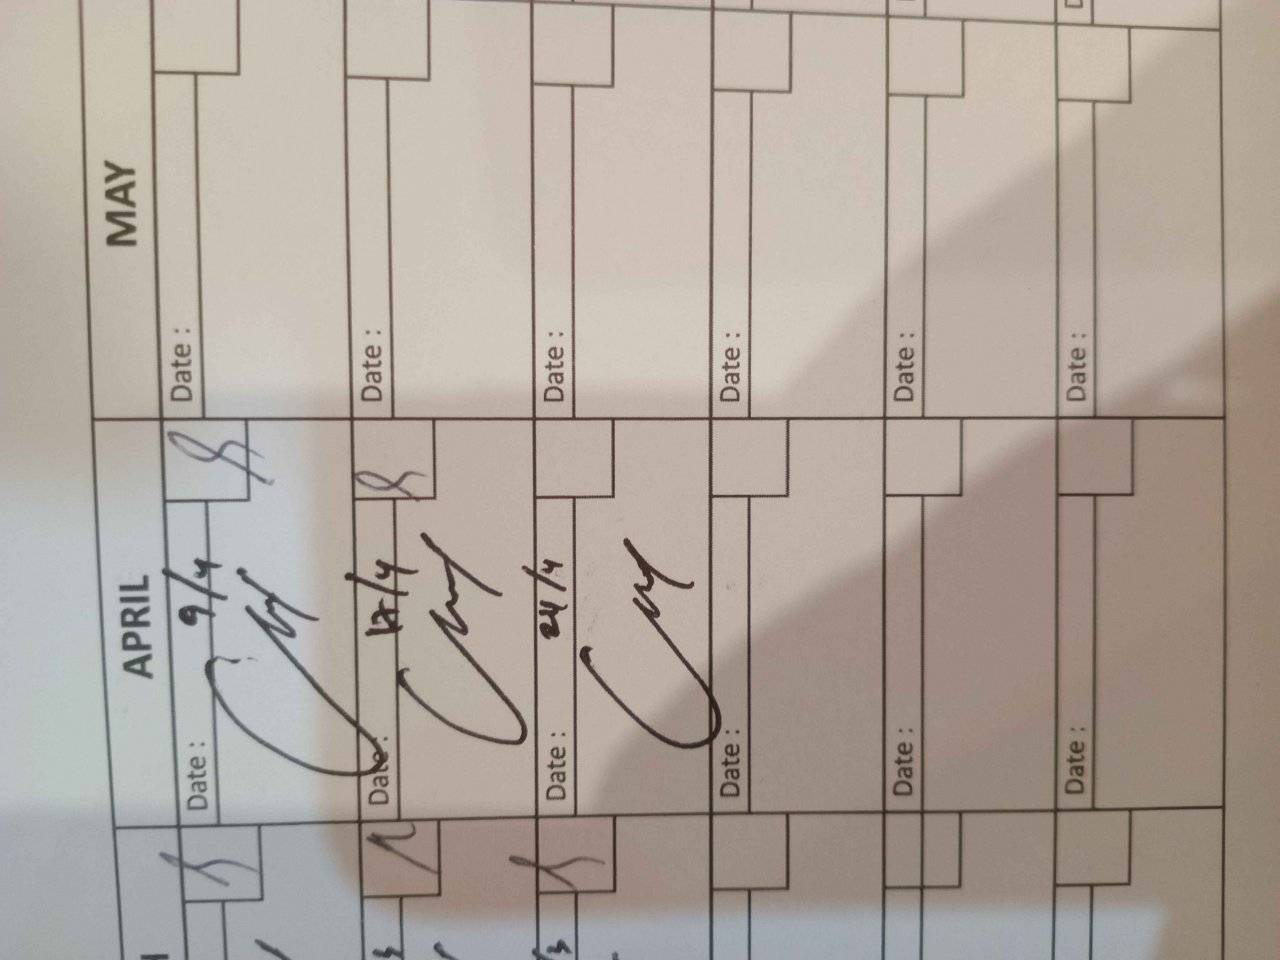 APRIL MAY
Date : 9/4 Date :
Date : 17/4 Date :
Date : 24/4 Date :
Date : Date :
Date : Date :
Date : Date :